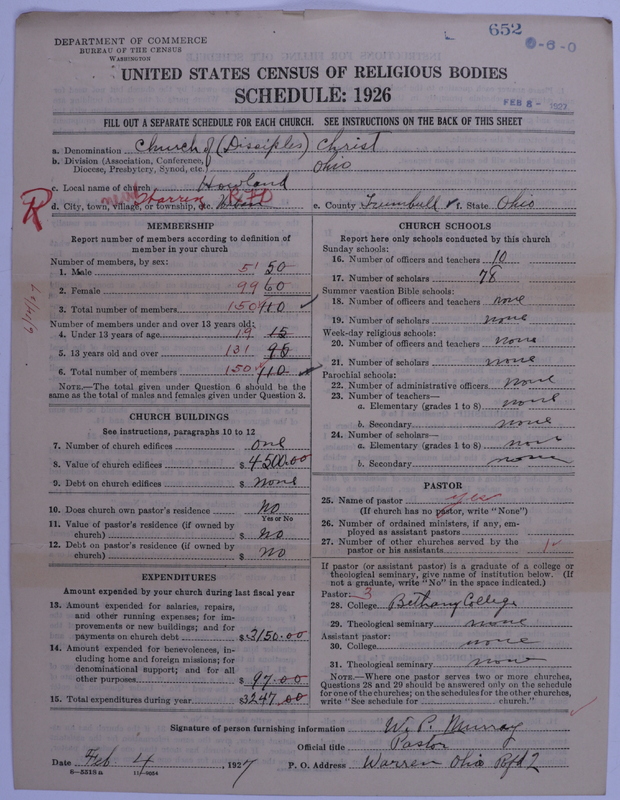 652
0-6-0
DEPARTMENT OF COMMERCE
BUREAU OF THE CENSUS
WASHINGTON
UNITED STATES CENSUS OF RELIGIOUS BODIES
SCHEDULE: 1926
FEB 8 - 1927
FILL OUT A SEPARATE SCHEDULE FOR EACH CHURCH. SEE INSTRUCTIONS ON THE BACK OF THIS SHEET
a. Denomination Church of (Disciples) Christ
b. Division (Association, Conference, Diocese, Presbytery, Synod, etc.) Ohio
c. Local name of church Howland
R
d. City, town, village, or township, etc. near Warren RFD e. County Trumbull f. State Ohio
MEMBERSHIP
Report number of members according to definition of
member in your church
Number of members, by sex:
1. Male 51 50
2. Female 99 60
3. Total number of members 150 110
6/14/27
Number of members under and over 13 years old:
4. Under 13 years of age 19 15
5. 13 years old and over 131 95
6. Total number of members 150 110
NOTE.—The total given under Question 6 should be the
same as the total of males and females given under Question 3.
CHURCH BUILDINGS
See instructions, paragraphs 10 to 12
7. Number of church edifices one
8. Value of church edifices $ 4500.00
9. Debt on church edifices $ none
10. Does church own pastor's residence No
Yes or No
11. Value of pastor's residence (if owned by
church) $ No
12. Debt on pastor's residence (if owned by
church) $ No
EXPENDITURES
Amount expended by your church during last fiscal year
13. Amount expended for salaries, repairs,
and other running expenses; for im-
provements or new buildings; and for
payments on church debt $ 3150.00
14. Amount expended for benevolences, in-
cluding home and foreign missions; for
denominational support; and for all
other purposes $ 97.00
15. Total expenditures during year $3247.00
CHURCH SCHOOLS
Report here only schools conducted by this church
Sunday schools:
16. Number of officers and teachers 10
17. Number of scholars 78
Summer vacation Bible schools:
18. Number of officers and teachers none
19. Number of scholars none
Week-day religious schools:
20. Number of officers and teachers none
21. Number of scholars none
Parochial schools:
22. Number of administrative officers none
23. Number of teachers—
a. Elementary (grades 1 to 8) none
b. Secondary none
24. Number of scholars—
a. Elementary (grades 1 to 8) none
b. Secondary none
PASTOR
25. Name of pastor yes
(If church has no pastor, write "None")
26. Number of ordained ministers, if any, em-
ployed as assistant pastors
27. Number of other churches served by the
pastor or his assistants 1
If pastor (or assistant pastor) is a graduate of a college or
theological seminary, give name of institution below. (If
not a graduate, write "No" in the space indicated.)
Pastor: 3
28. College Bethany College
29. Theological seminary none
Assistant pastor:
30. College none
31. Theological seminary none
NOTE.—Where one pastor serves two or more churches,
Questions 28 and 29 should be answered only on the schedule
for one of the churches; on the schedules for the other churches,
write "See schedule for church."
Signature of person furnishing information W. P. Murray
Official title Pastor
Date Feb 4, 1927 P. O. Address Warren Ohio Rfd 2
8—5518 a 11—9024